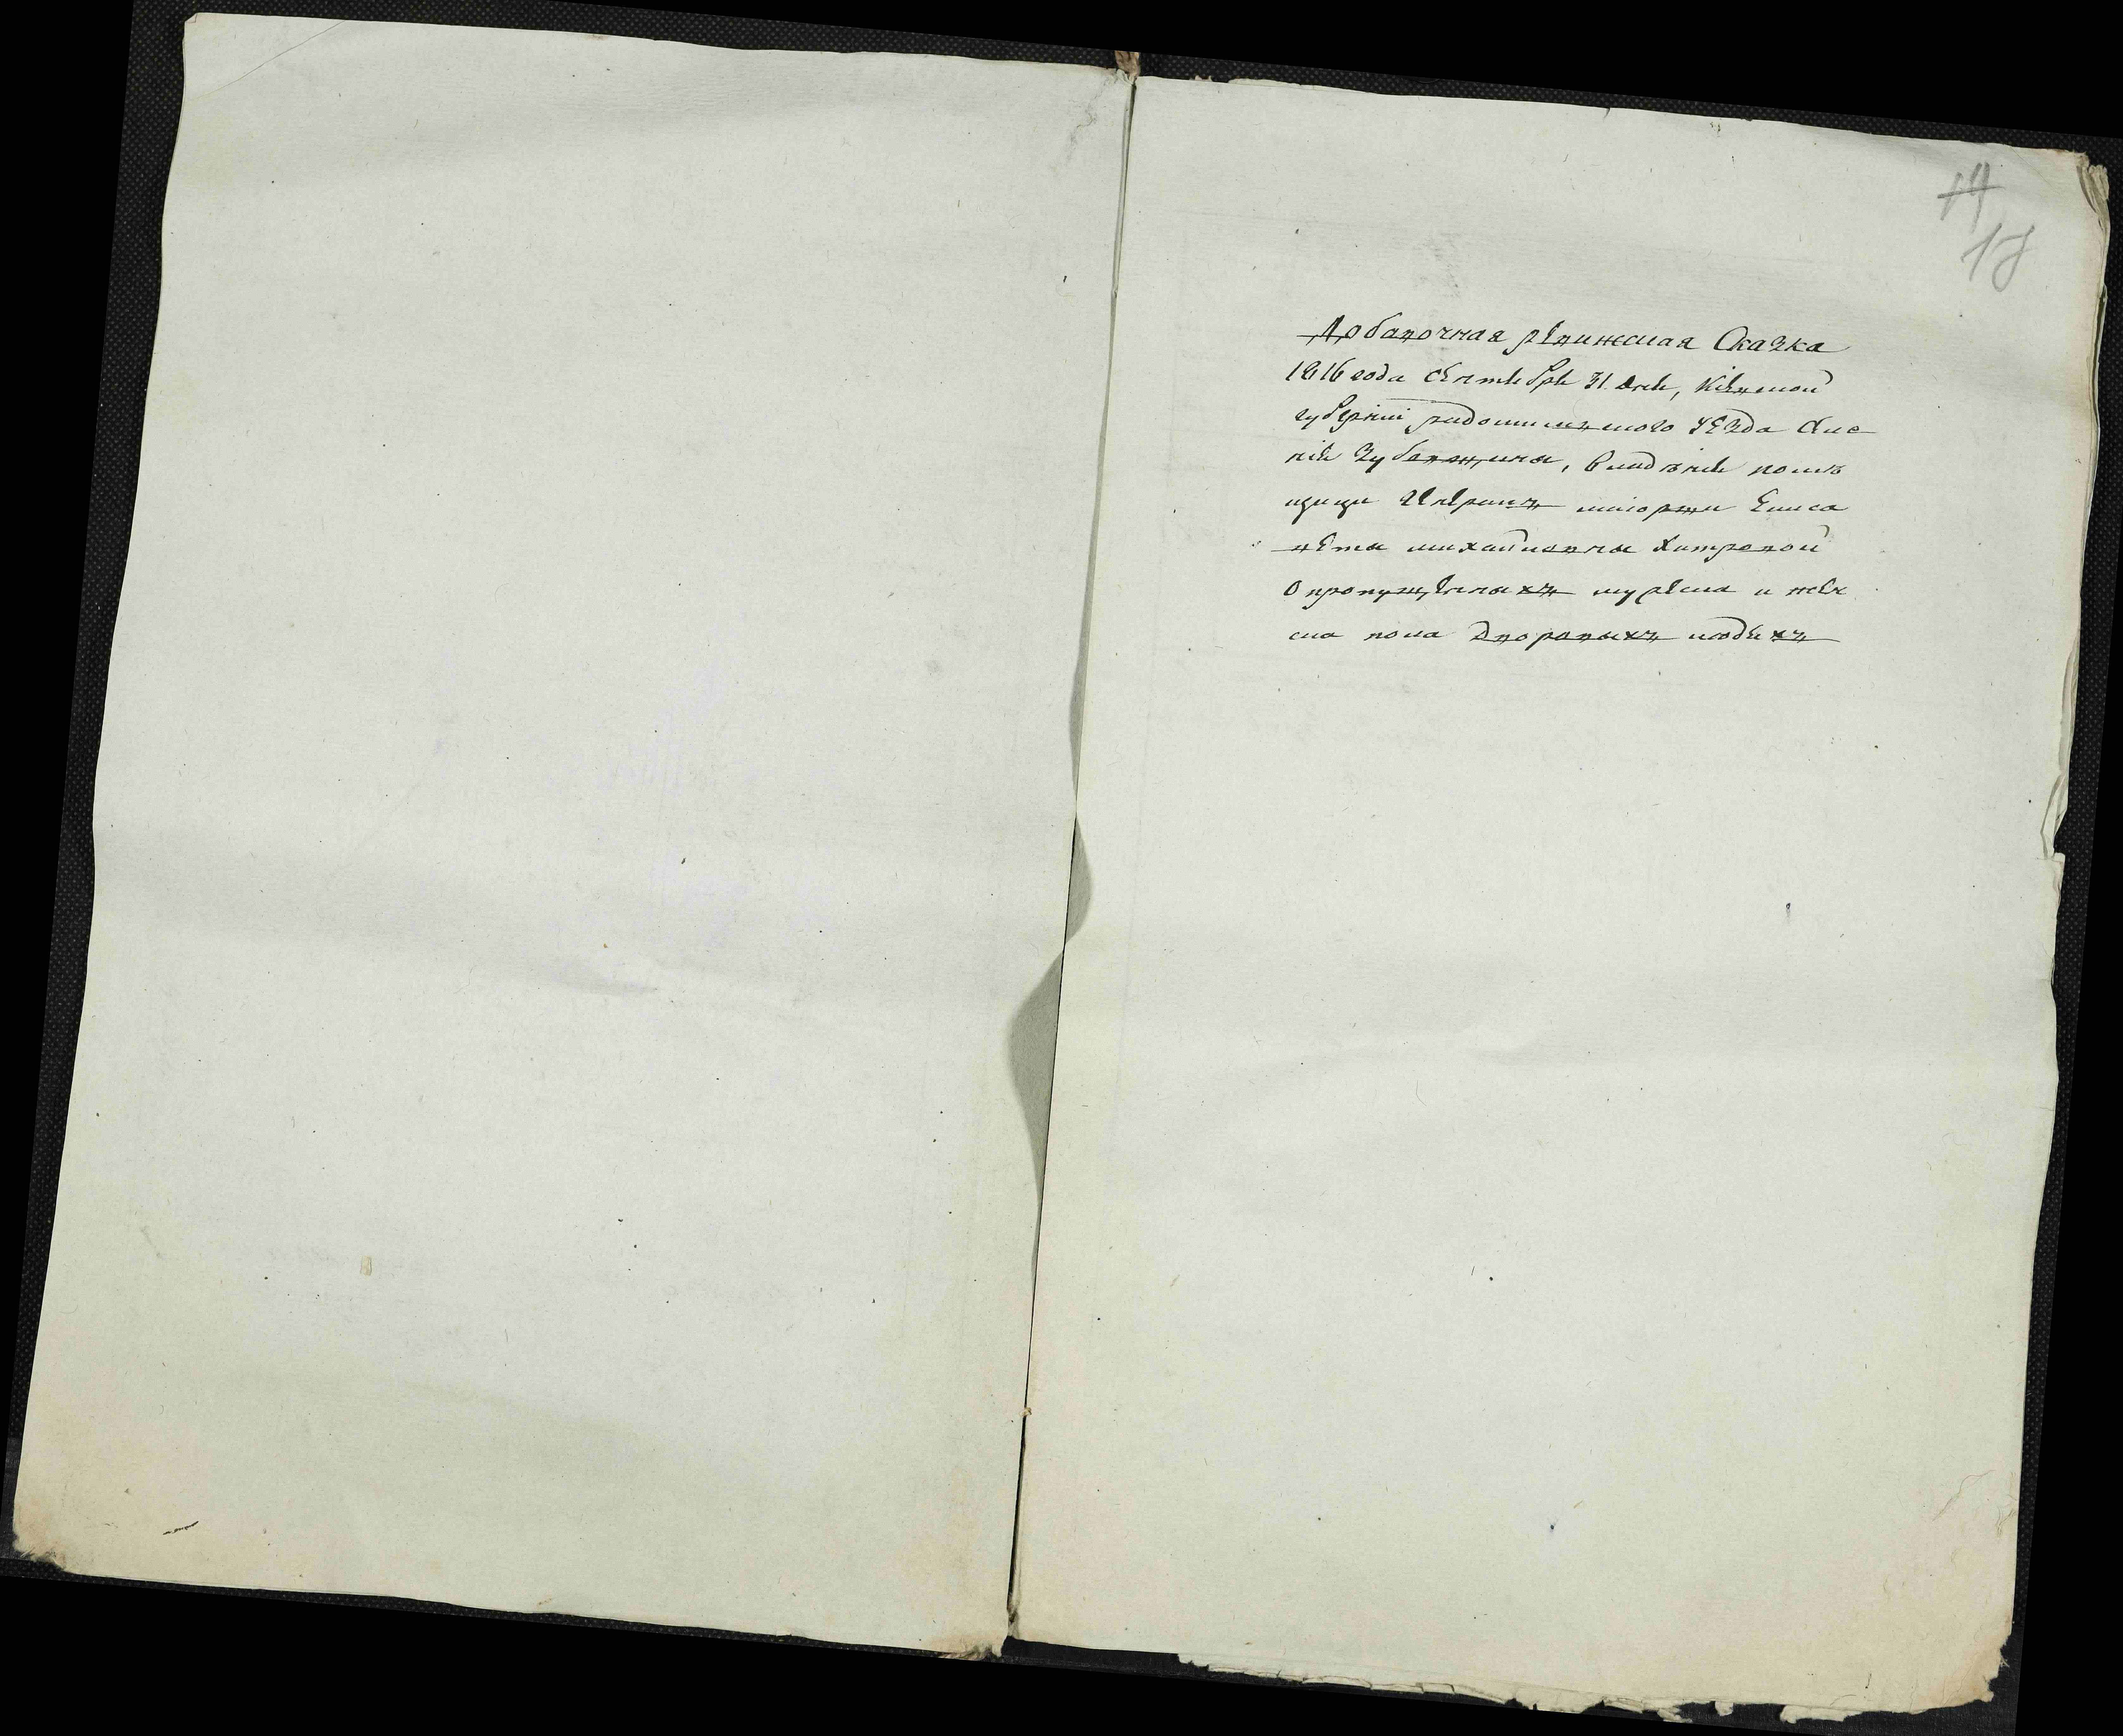 17
18
Добавочная ревижская Сказка
1816 года сентебре 31 дне, Кіевской
губерніи радомишлъского уезда
Зубавщины, владѣніе помѣ
щици Генералъ маіорши Елиса
веты михайловны хитровой
о пропущенныхъ мужеска и жен
ска пола дворовыхъ людехъ